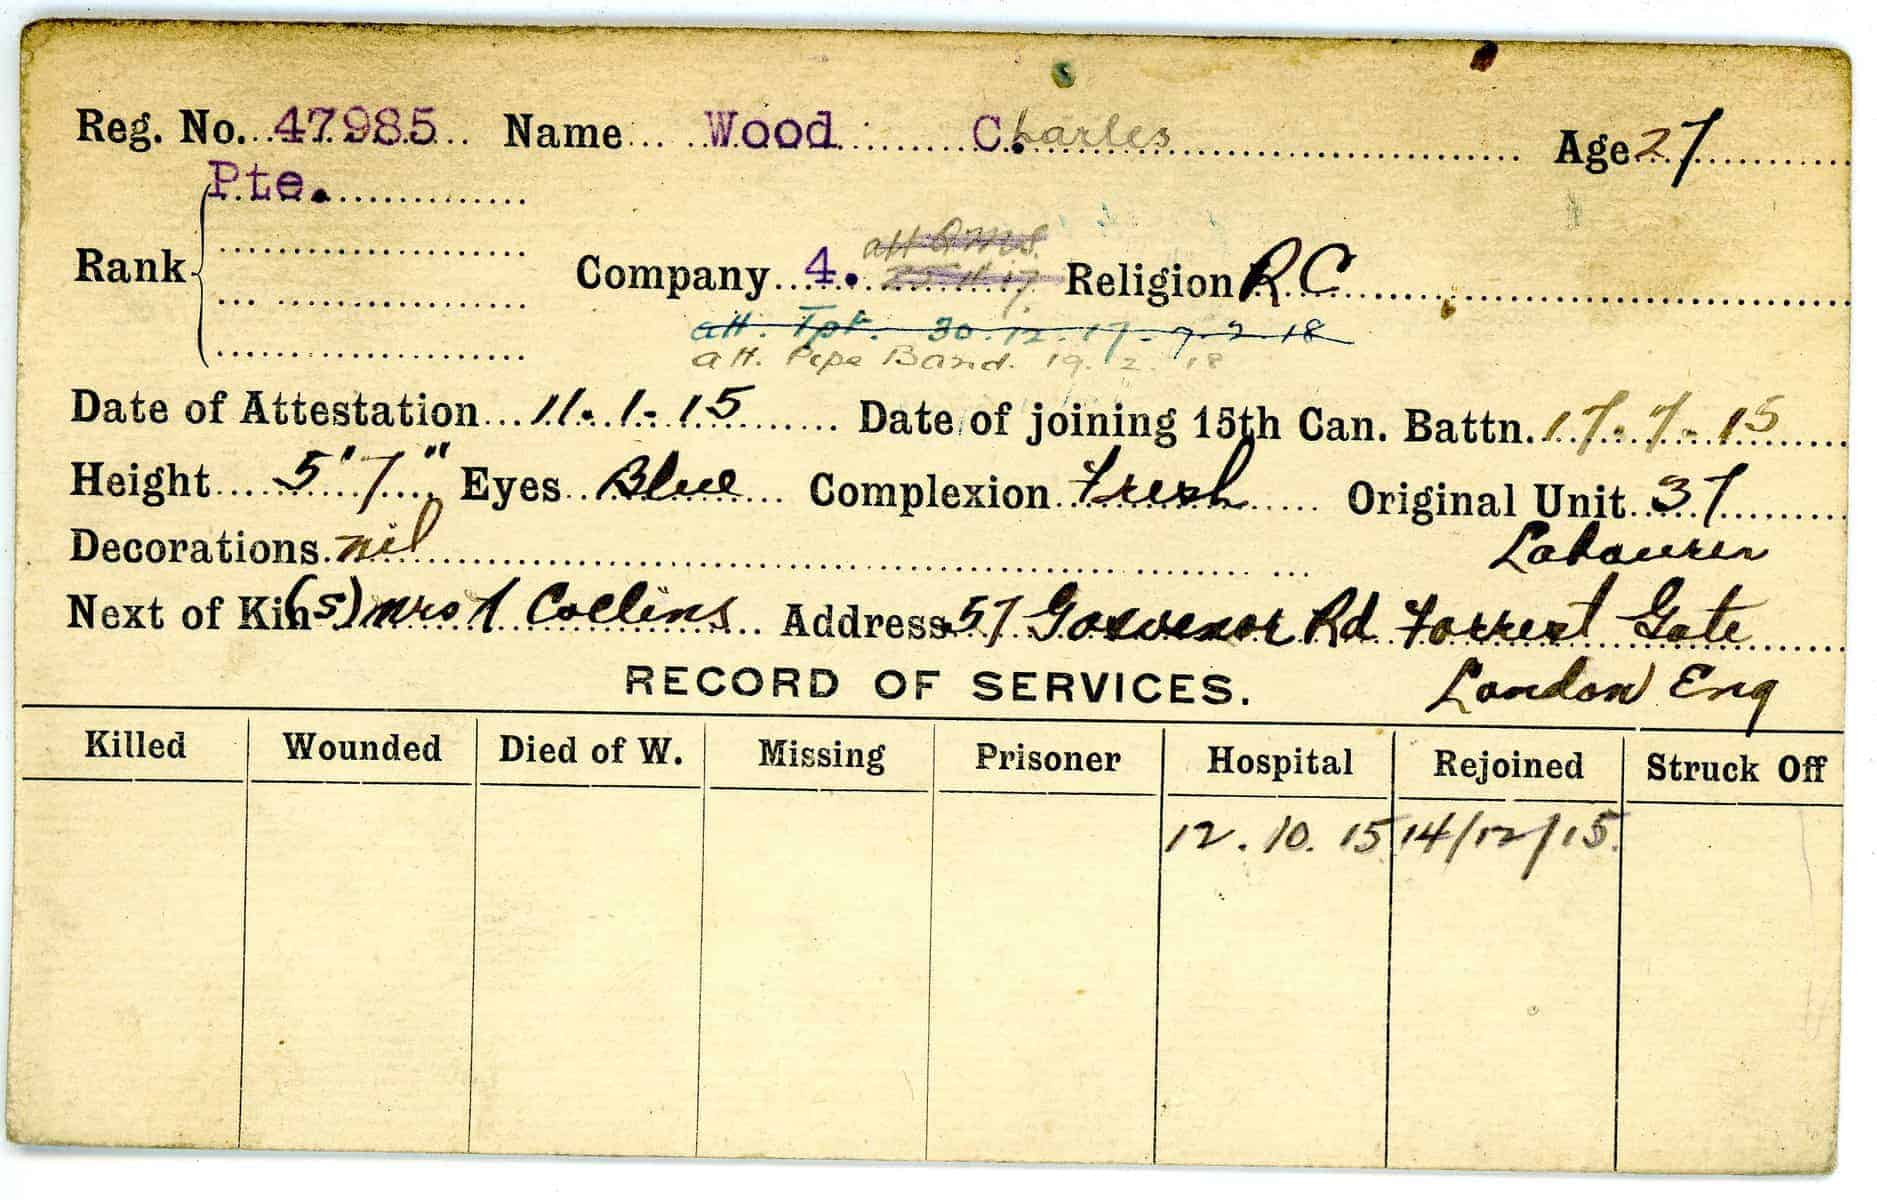 Reg. No. 47985 Name Wood C.harles Age 27
Pte.
Rank Company 4. att QMS. Religion RC
25 11 17.
att. Tpt. 30.12.17 - 7 2 18
att. Pipe Band. 19. 2. 18
Date of Attestation 11.1.15 Date of joining 15th Can. Battn. 17.7.15
Height 5'7" Eyes Blue Complexion Fresh Original Unit 37
Decorations nil Labourer
Next of Kin (S) Mrs A Collins Address 57 Gosvenor Rd Forrest Gate
London Eng
RECORD OF SERVICES.
Killed Wounded Died of W. Missing Prisoner Hospital Rejoined Struck Off
12.10.15 14/12/15.